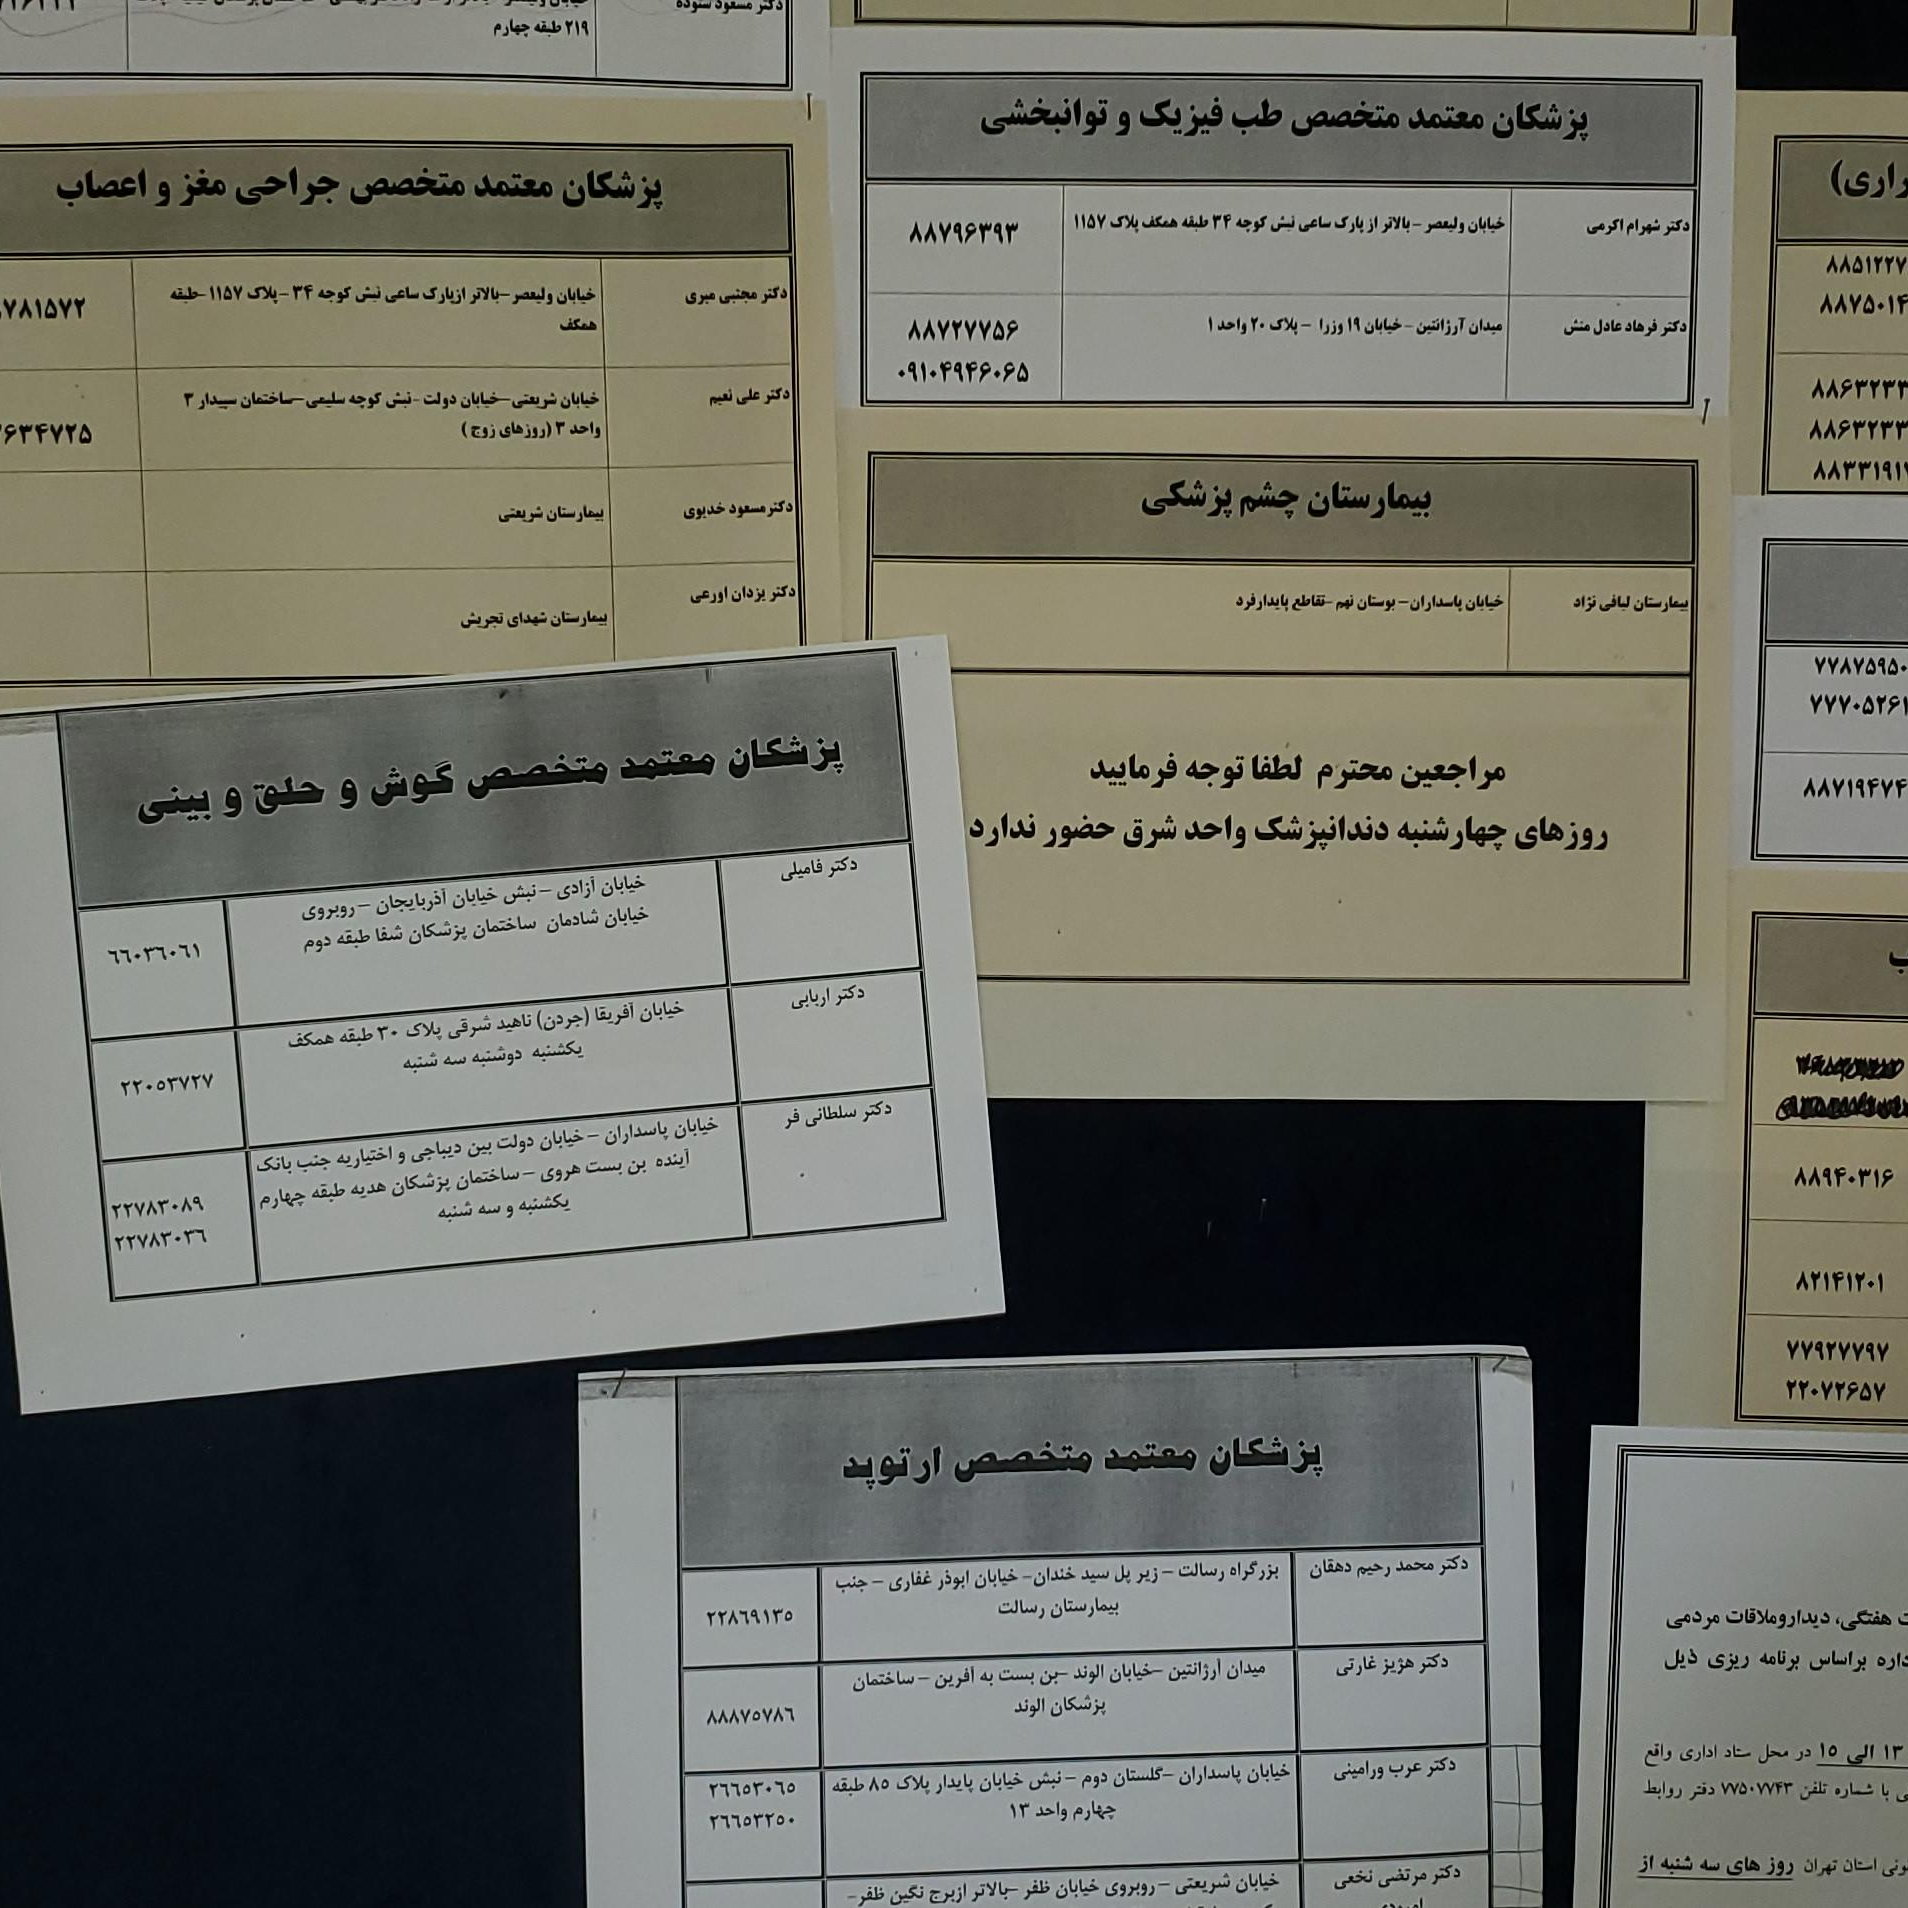 دکتر مسعود ستوده
۲۱۹ طبقه چهارم
پزشکان معتمد متخصص جراحی مغز و اعصاب
دکتر مجتبی میری
خیابان ولیعصر–بالاتر ازپارک ساعی نبش کوچه ۳۴ –پلاک ۱۱۵۷ –طبقه
همکف
۷۸۱۵۷۲
دکتر علی نعیم
خیابان شریعتی–خیابان دولت –نبش کوچه سلیمی–ساختمان سپیدار ۳
واحد ۳ (روزهای زوج )
۶۳۴۷۲۵
دکترمسعود خدیوی
بیمارستان شریعتی
دکتر یزدان اورعی
بیمارستان شهدای تجریش
پزشکان معتمد متخصص طب فیزیک و توانبخشی
دکتر شهرام اکرمی
خیابان ولیعصر – بالاتر از پارک ساعی نبش کوچه ۳۴ طبقه همکف پلاک ۱۱۵۷
۸۸۷۹۶۳۹۳
دکتر فرهاد عادل منش
میدان آرژانتین – خیابان ۱۹ وزرا – پلاک ۲۰ واحد ۱
۸۸۷۲۷۷۵۶
۰۹۱۰۴۹۴۶۰۶۵
بیمارستان چشم پزشکی
بیمارستان لبافی نژاد
خیابان پاسداران– بوستان نهم –تقاطع پایدارفرد
مراجعین محترم لطفا توجه فرمایید
روزهای چهارشنبه دندانپزشک واحد شرق حضور ندارد
پزشکان معتمد متخصص گوش و حلق و بینی
دکتر فامیلی
خیابان آزادی – نبش خیابان آذربایجان – روبروی
خیابان شادمان ساختمان پزشکان شفا طبقه دوم
۶۶۰۳۶۰۶۱
دکتر اربابی
خیابان آفریقا (جردن) ناهید شرقی پلاک ۳۰ طبقه همکف
یکشنبه دوشنبه سه شنبه
۲۲۰۵۳۷۲۷
دکتر سلطانی فر
خیابان پاسداران – خیابان دولت بین دیباجی و اختیاریه جنب بانک
آینده بن بست هروی – ساختمان پزشکان هدیه طبقه چهارم
یکشنبه و سه شنبه
۲۲۷۸۳۰۸۹
۲۲۷۸۳۰۳۶
پزشکان معتمد متخصص ارتوپد
دکتر محمد رحیم دهقان
بزرگراه رسالت – زیر پل سید خندان– خیابان ابوذر غفاری – جنب
بیمارستان رسالت
۲۲۸۶۹۱۳۵
دکتر هژیر غارتی
میدان آرژانتین –خیابان الوند –بن بست به آفرین – ساختمان
پزشکان الوند
۸۸۸۷۵۷۸۶
دکتر عرب ورامینی
خیابان پاسداران –گلستان دوم – نبش خیابان پایدار پلاک ۸۵ طبقه
چهارم واحد ۱۳
۲۶۶۵۳۰۶۵
۲۶۶۵۳۲۵۰
دکتر مرتضی نخعی
خیابان شریعتی – روبروی خیابان ظفر –بالاتر ازبرج نگین ظفر–
راری)
۸۸۵۱۲۲۷
۸۸۷۵۰۱۴
۸۸۶۳۲۳۳
۸۸۶۳۲۳۳
۸۸۳۳۱۹۱
۷۷۸۷۵۹۵۰
۷۷۷۰۵۲۶۱
۸۸۷۱۹۴۷۴
ب
۸۸۹۴۰۳۱۶
۸۲۱۴۱۲۰۱
۷۷۹۲۷۷۹۷
۲۲۰۷۲۶۵۷
ت هفتگی، دیداروملاقات مردمی
داره براساس برنامه ریزی ذیل
۱۳ الی ۱۵ در محل ستاد اداری واقع
ی با شماره تلفن ۷۷۵۰۷۷۴۳ دفتر روابط
ونی استان تهران روز های سه شنبه از